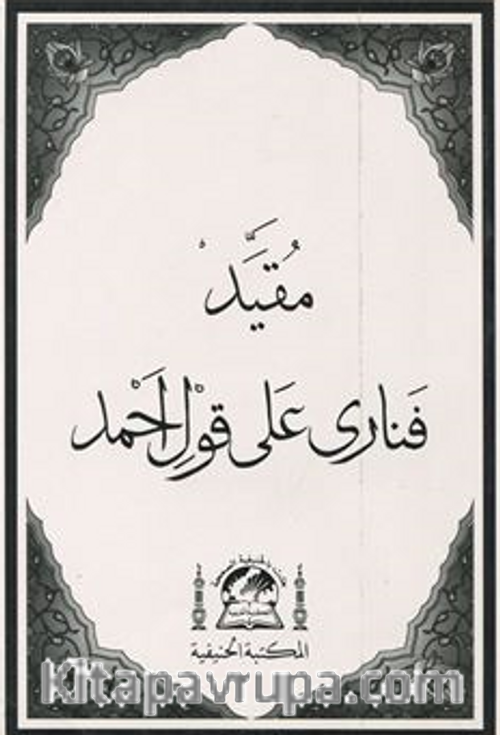 مُقَيَّدْ
فَنارى عَلى قَوْلِ اَحْمد
المكتبة الحنيفية
kitapavrupa.com